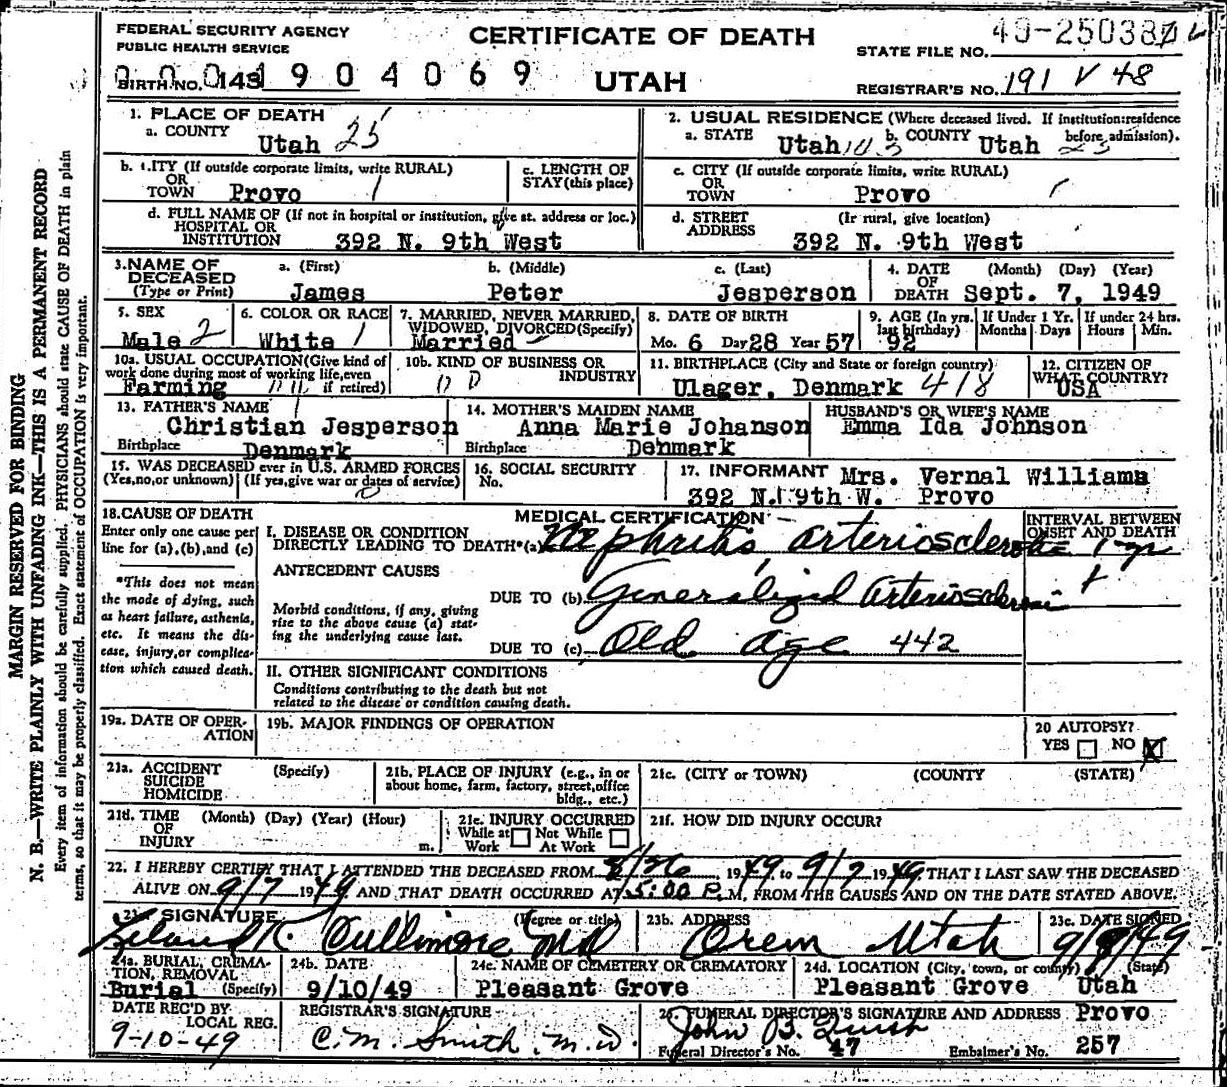 FEDERAL SECURITY AGENCY
PUBLIC HEALTH SERVICE
CERTIFICATE OF DEATH
STATE FILE NO.
BIRTH NO. 143 1904069
UTAH
REGISTRAR'S NO. 191 V 48
MARGIN RESERVED FOR BINDING
N. B.—WRITE PLAINLY WITH UNFADING INK—THIS IS A PERMANENT RECORD
Every item of information should be carefully supplied. PHYSICIANS should state CAUSE OF DEATH in plain
terms, so that it may be properly classified. Exact statement of OCCUPATION is very important.
1. PLACE OF DEATH
a. COUNTY
Utah 25
2. USUAL RESIDENCE (Where deceased lived. If institution: residence
before admission).
a. STATE Utah b. COUNTY Utah
b. CITY (If outside corporate limits, write RURAL)
OR
TOWN Provo 1
c. LENGTH OF
STAY (this place)
c. CITY (If outside corporate limits, write RURAL)
OR
TOWN Provo
d. FULL NAME OF (If not in hospital or institution, give st. address or loc.)
HOSPITAL OR
INSTITUTION 392 N. 9th West
d. STREET (If rural, give location)
ADDRESS 392 N. 9th West
3. NAME OF
DECEASED
(Type or Print)
a. (First) James
b. (Middle) Peter
c. (Last) Jesperson
4. DATE (Month) (Day) (Year)
OF
DEATH Sept. 7, 1949
5. SEX
Male 2
6. COLOR OR RACE
White 1
7. MARRIED, NEVER MARRIED,
WIDOWED, DIVORCED (Specify)
Married
8. DATE OF BIRTH
Mo. 6 Day 28 Year 57
9. AGE (In yrs.
last birthday)
92
If Under 1 Yr.
Months Days
If under 24 hrs.
Hours Min.
10a. USUAL OCCUPATION (Give kind of
work done during most of working life, even
if retired)
Farming
10b. KIND OF BUSINESS OR
INDUSTRY
11. BIRTHPLACE (City and State or foreign country)
Ulager, Denmark 418
12. CITIZEN OF
WHAT COUNTRY?
USA
13. FATHER'S NAME
Christian Jesperson
Birthplace Denmark
14. MOTHER'S MAIDEN NAME
Anna Marie Johanson
Birthplace Denmark
HUSBAND'S OR WIFE'S NAME
Emma Ida Johnson
15. WAS DECEASED ever in U.S. ARMED FORCES
(Yes, no, or unknown) (If yes, give war or dates of service)
16. SOCIAL SECURITY
No.
17. INFORMANT Mrs. Vernal Williams
392 N. 9th W. Provo
18. CAUSE OF DEATH
Enter only one cause per
line for (a), (b), and (c)
*This does not mean
the mode of dying, such
as heart failure, asthenia,
etc. It means the dis-
ease, injury, or complica-
tion which caused death.
MEDICAL CERTIFICATION
INTERVAL BETWEEN
ONSET AND DEATH
I. DISEASE OR CONDITION
DIRECTLY LEADING TO DEATH* (a) Nephritis, arteriosclerotic 1 yr
ANTECEDENT CAUSES
Morbid conditions, if any, giving
rise to the above cause (a) stat-
ing the underlying cause last.
DUE TO (b) Generalized Arteriosclerosis +
DUE TO (c) Old age 442
II. OTHER SIGNIFICANT CONDITIONS
Conditions contributing to the death but not
related to the disease or condition causing death.
19a. DATE OF OPER-
ATION
19b. MAJOR FINDINGS OF OPERATION
20 AUTOPSY?
YES NO X
21a. ACCIDENT (Specify)
SUICIDE
HOMICIDE
21b. PLACE OF INJURY (e.g., in or
about home, farm, factory, street, office
bldg., etc.)
21c. (CITY or TOWN) (COUNTY (STATE)
21d. TIME (Month) (Day) (Year) (Hour)
OF
INJURY m.
21e. INJURY OCCURRED
While at Not While
Work At Work
21f. HOW DID INJURY OCCUR?
22. I HEREBY CERTIFY THAT I ATTENDED THE DECEASED FROM 8/26, 1949 to 9/7 1949 THAT I LAST SAW THE DECEASED
ALIVE ON 9/7 1949 AND THAT DEATH OCCURRED AT 5:00 P.M, FROM THE CAUSES AND ON THE DATE STATED ABOVE.
23a. SIGNATURE (Degree or title)
Leland K. Cullimore MD
23b. ADDRESS
Orem Utah
23c. DATE SIGNED
9/8/49
24a. BURIAL, CREMA-
TION, REMOVAL
Burial (Specify)
24b. DATE
9/10/49
24c. NAME OF CEMETERY OR CREMATORY
Pleasant Grove
24d. LOCATION (City, town, or county) (State)
Pleasant Grove Utah
DATE REC'D BY
LOCAL REG.
9-10-49
REGISTRAR'S SIGNATURE
C. M. Smith, M.D.
25. FUNERAL DIRECTOR'S SIGNATURE AND ADDRESS Provo
John B.
Funeral Director's No. 47 Embalmer's No. 257